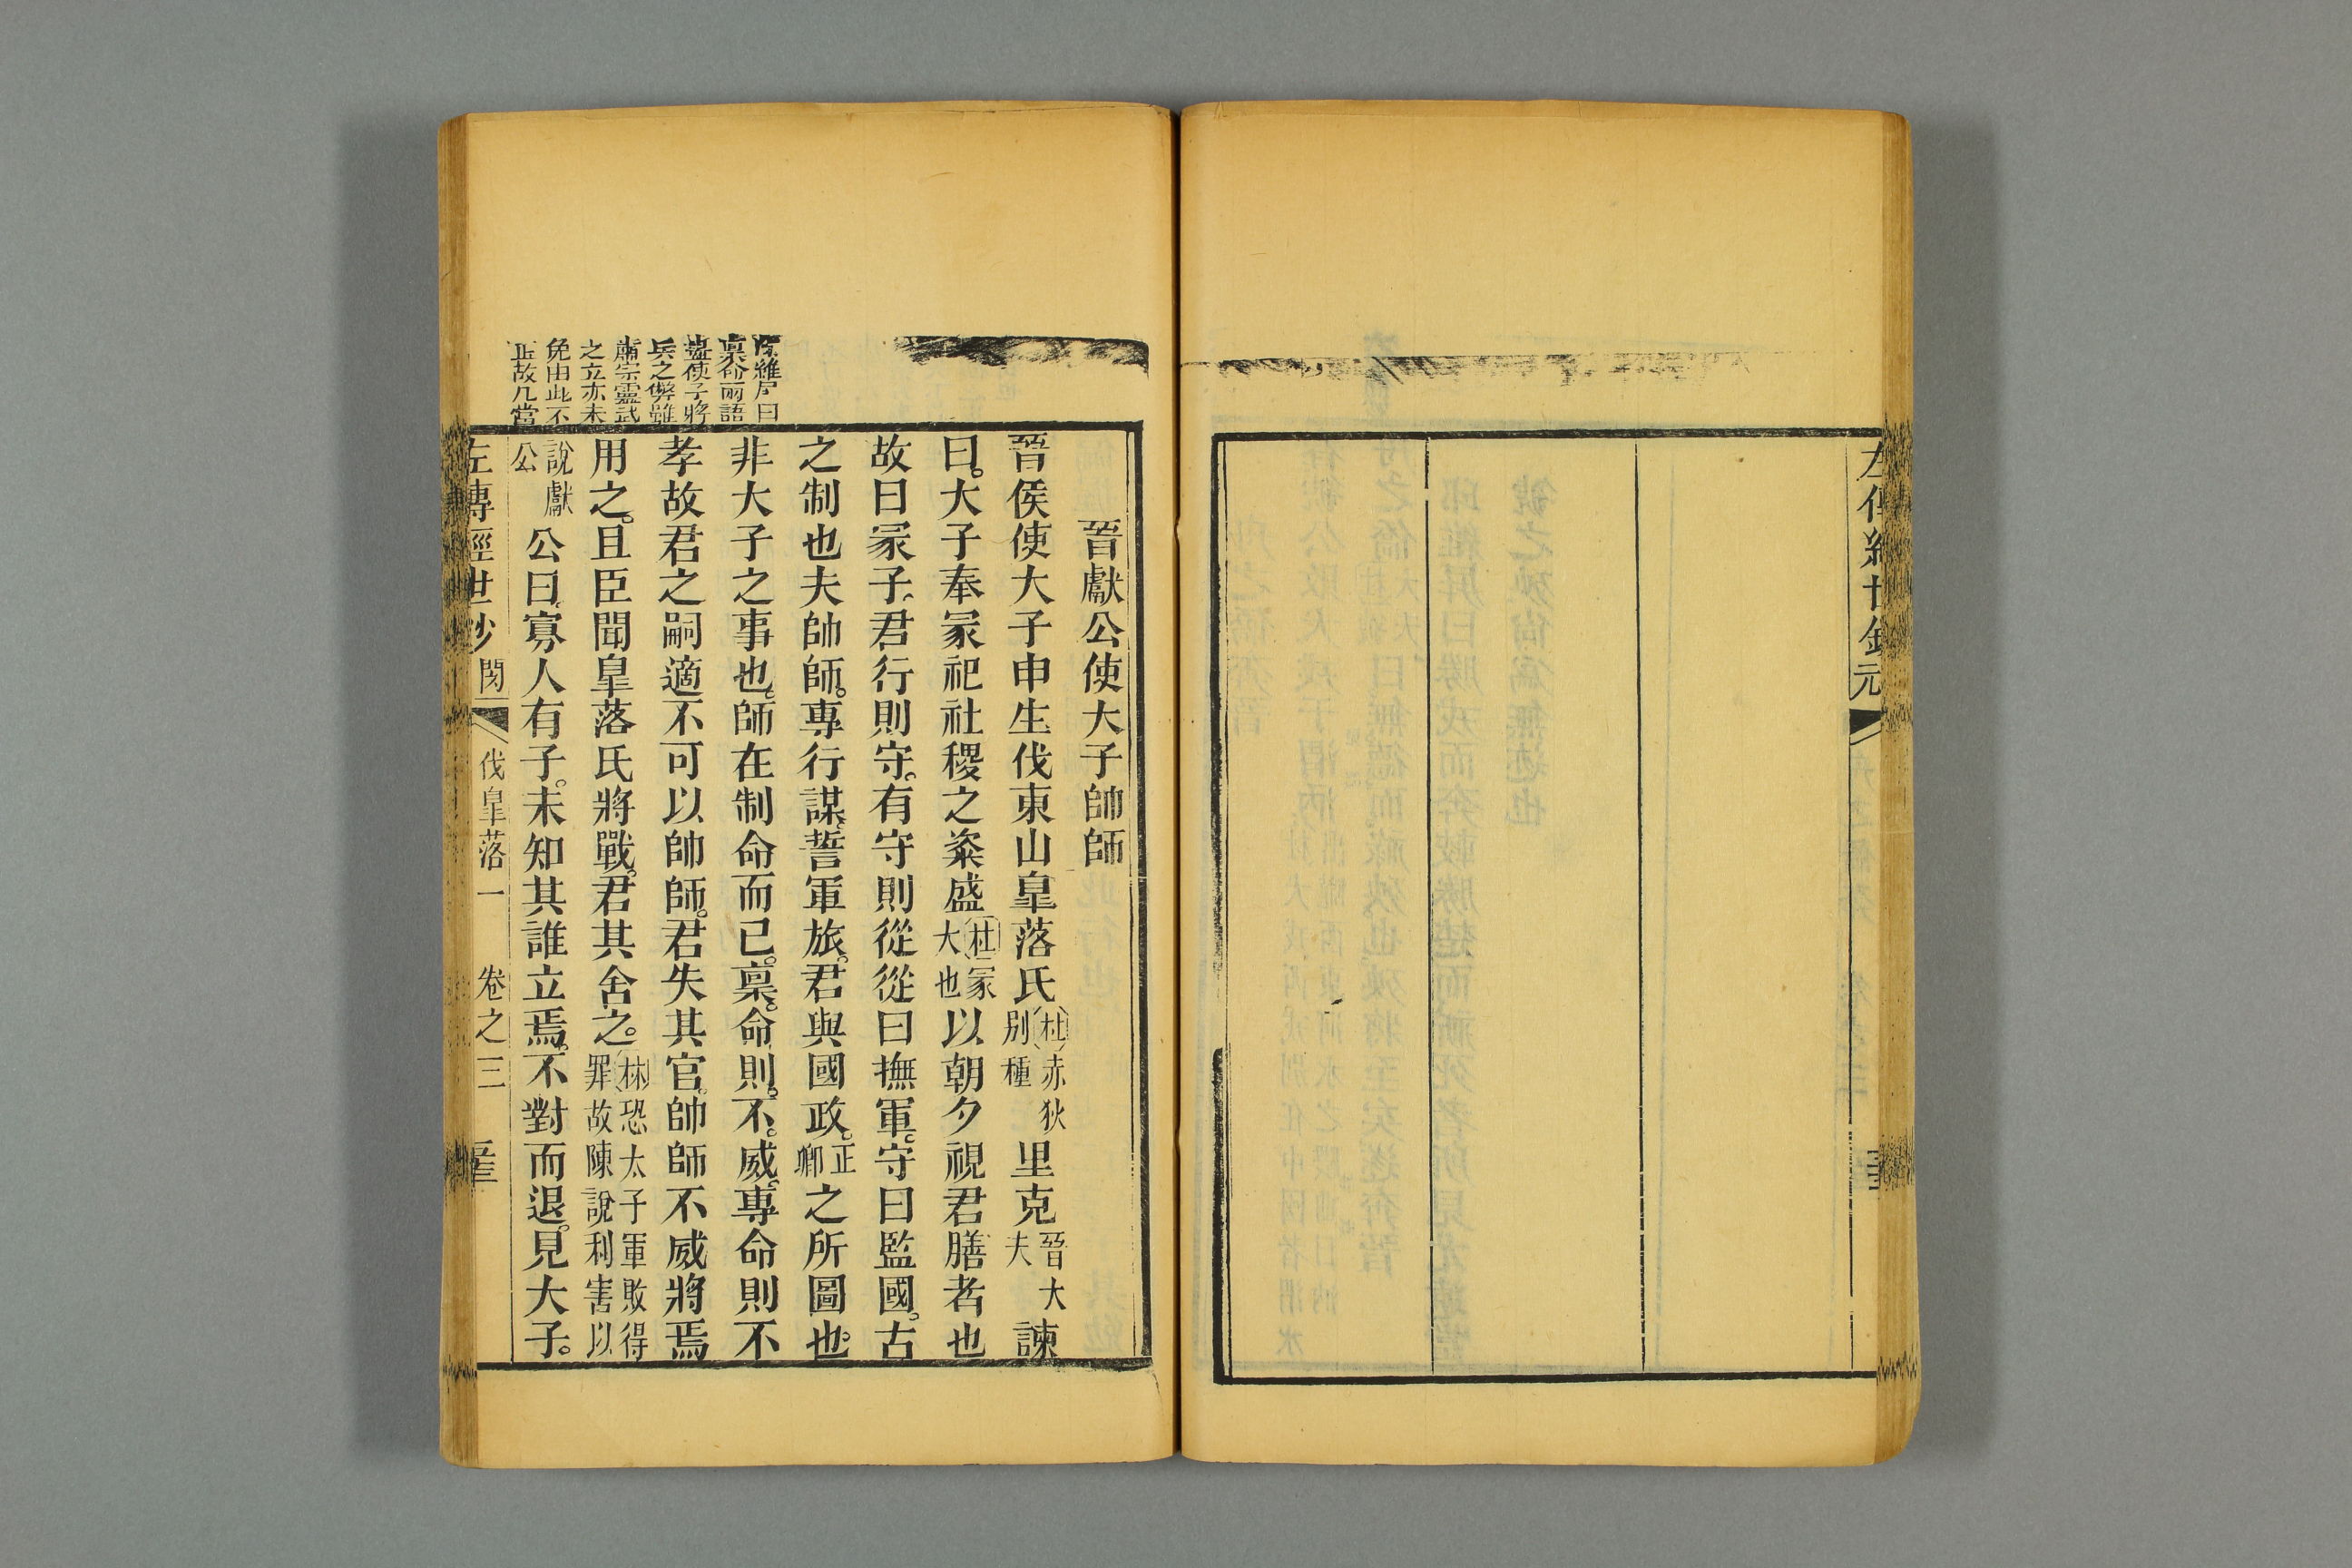 晉獻公使大子帥師
晉侯使大子申生伐東山臯落氏杜赤狄別種里克晉大夫諫
曰。大子奉冢祀社稷之粢盛杜冢大也以朝夕視君膳者也
故曰冢子。君行則守。有守則從從曰撫軍。守曰監國。古
之制也夫帥師。專行謀。誓軍旅。君與國政。正卿之所圖也。
非大子之事也。師在制命而已。稟。命。則。不。威。專命則不
孝故君之嗣適不可以帥師。君失其官。帥師不威將焉
用之。且臣聞臯落氏將戰。君其舍之。林恐太子軍敗得罪故陳說利害以
說獻公公曰。寡人有子。未知其誰立焉。不對而退。見大子。
維屏曰
稟命兩語
使子將
兵之弊雖
肅宗靈武
之立亦未
免由此不
正故凡當
左傳經世鈔 閔 伐臯落一 卷之三